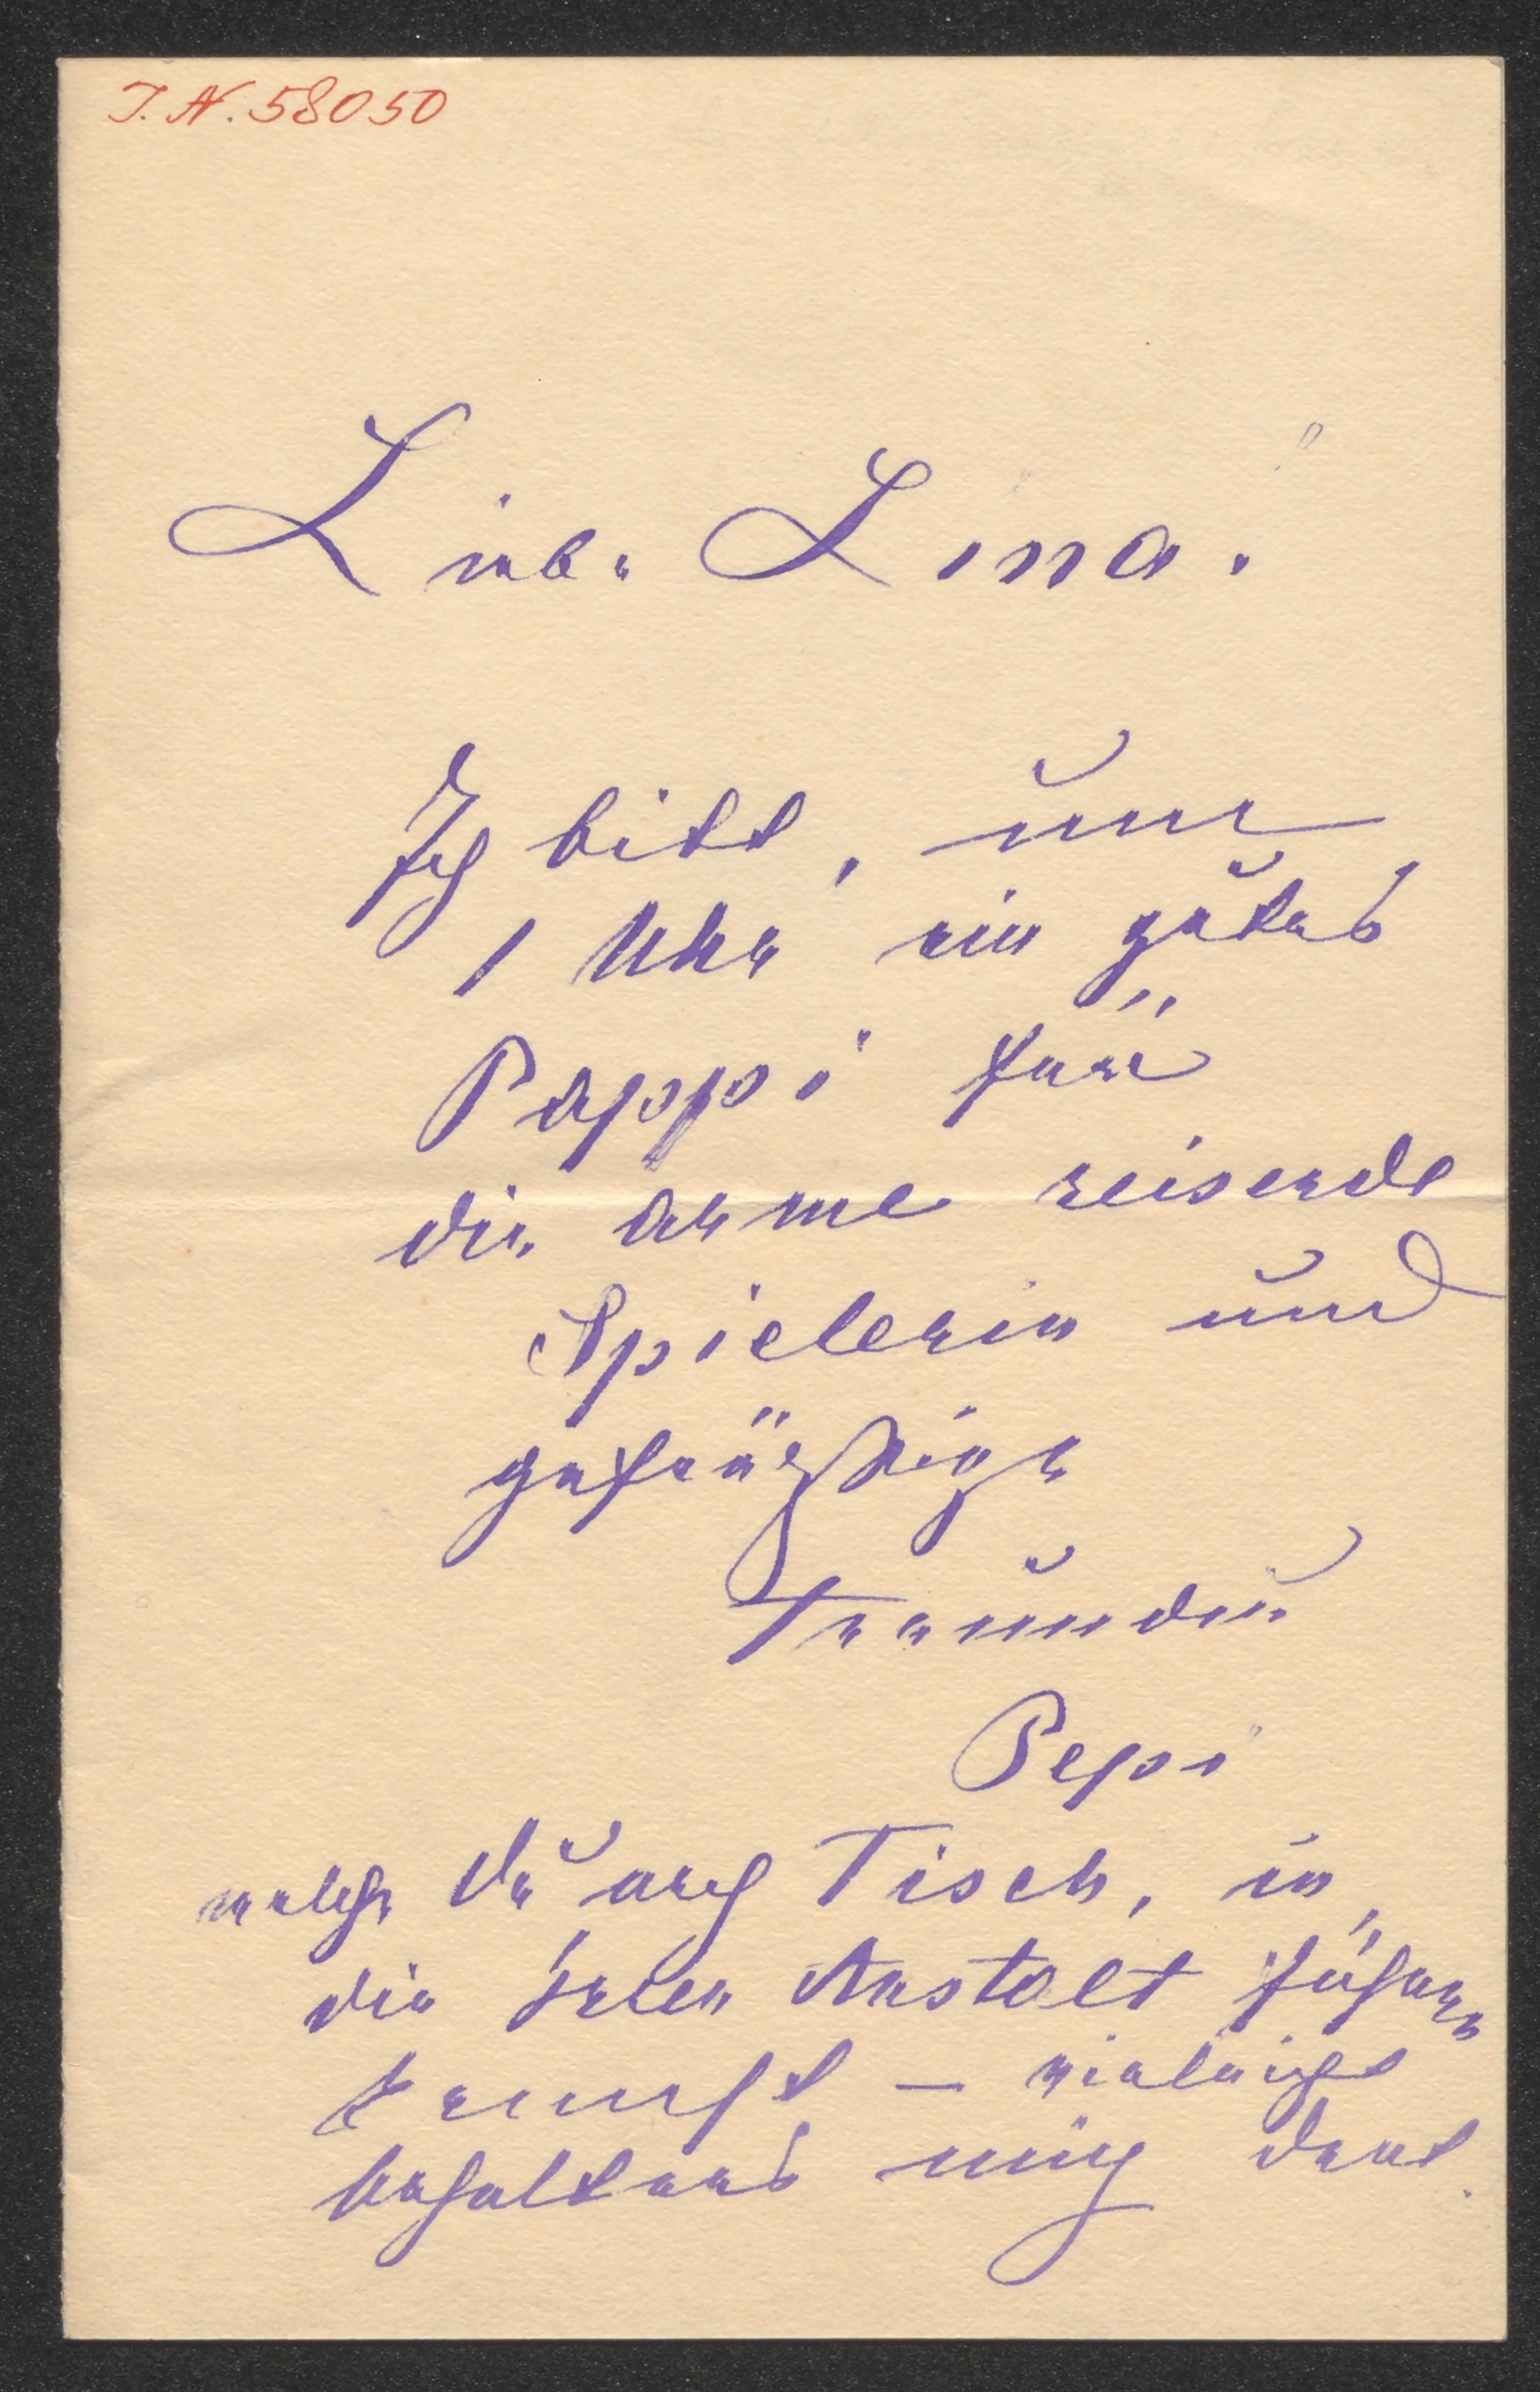 J. N. 58050
Liebe Lina!
Ich bitte, um
1 Uhr ein gutes
Pappi für
die arme reisende
Spielerin und
gefräßige
Freundin
Pepi
welche Du nach Tisch, in
die Irren Anstalt führen
kannst – vieleicht
behalten's mich dort.